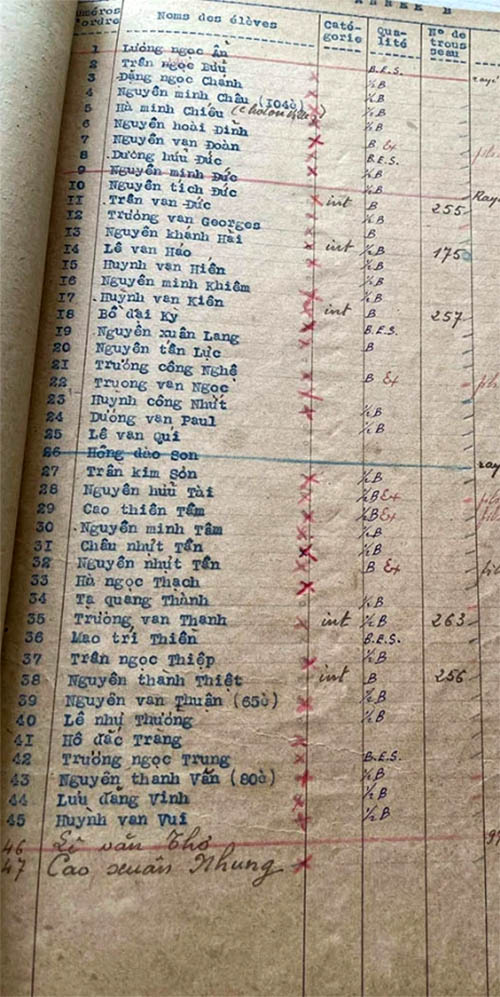 ANNEE B
Numéros d'ordre Noms des élèves Caté- gorie Qua- lité Nº de trous seau
1 Lương ngọc Ẩn
2 Trần ngọc Bửu B.E.S. rayé
3 Đặng ngọc Chánh ½B
4 Nguyễn minh Châu (104è) ½B
5 Hà minh Chiếu ½B
6 Nguyễn hoài Đình ½B
7 Nguyễn van Đoàn B Ex
8 Dương hữu Đức B.E.S.
9 Nguyễn minh Đức ½B
10 Nguyễn tích Đức ½B
11 Trần van Đức int B 255
12 Trương van Georges ½B
13 Nguyễn khánh Hài B
14 Lê van Hảo int ½B 175
15 Huỳnh van Hiến ½B
16 Nguyễn minh Khiêm ½B
17 Huỳnh van Kiên ½B
18 Bồ đài Kỳ int B 257
19 Nguyễn xuân Lang B.E.S.
20 Nguyễn tấn Lực B
21 Trương công Nghệ
22 Truong van Ngọc B Ex
23 Huỳnh công Nhứt
24 Dương van Paul ½B
25 Lê van Quí ½B
26 Hồng đào Son
27 Trần kim Sơn ½B
28 Nguyễn hữu Tài ½B Ex
29 Cao thiên Tâm ½B Ex
30 Nguyễn minh Tâm ½B
31 Châu nhựt Tấn ½B
32 Nguyễn nhựt Tấn B Ex
33 Hà ngọc Thạch
34 Tạ quang Thành ½B
35 Trương van Thanh int ½B 263
36 Mao tri Thiên B.E.S.
37 Trần ngọc Thiệp ½B
38 Nguyễn thành Thiệt int B 256
39 Nguyễn van Thuận (65è) ½B
40 Lê như Thưởng ½B
41 Hồ đắc Tràng
42 Trương ngọc Trung B.E.S.
43 Nguyễn thanh Vân (80è) ½B
44 Lưu đằng Vinh ½B
45 Huỳnh van Vui ½B
46 Lê văn Thọ
47 Cao xuân Nhung